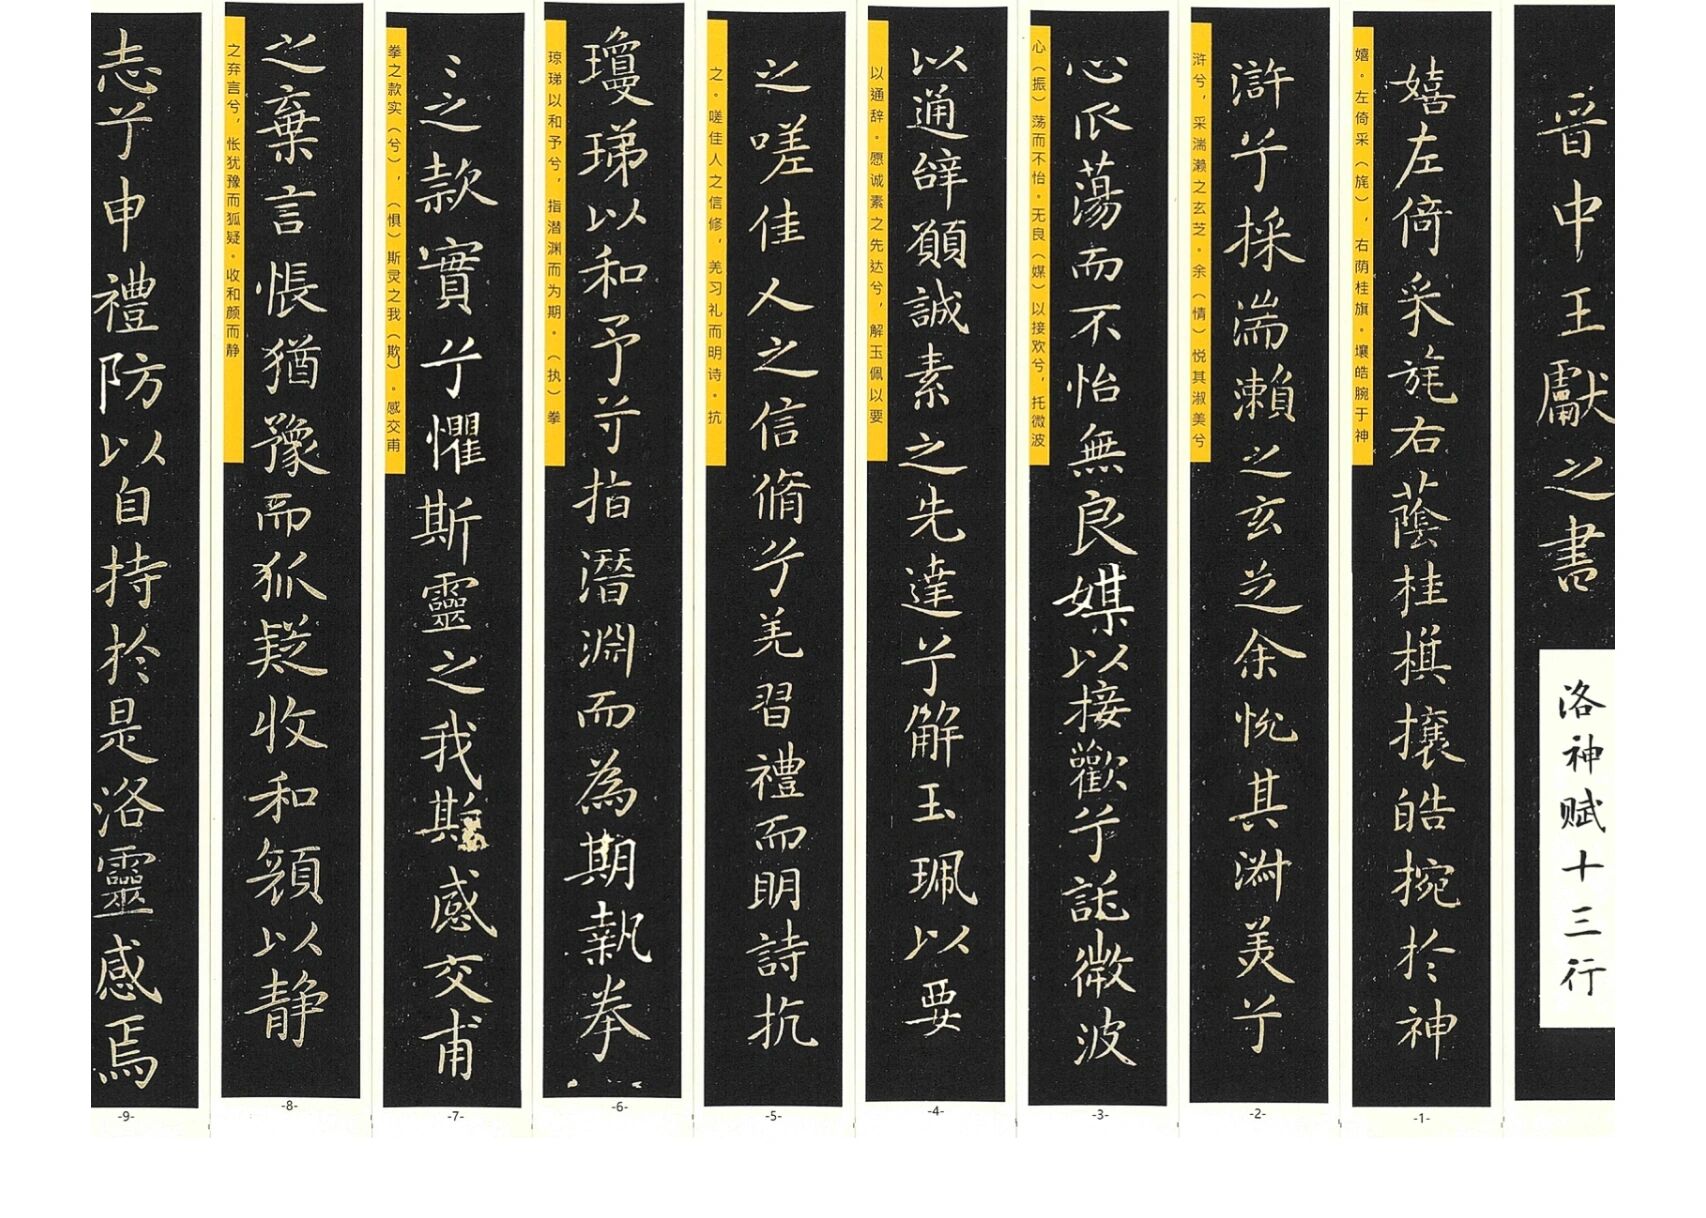 晋中王獻之書
洛神赋十三行
嬉左倚采旄右蔭桂旗攘皓捥於神
嬉。左倚采(旄),右荫桂旗。壤皓腕于神
-1-
滸兮採湍瀨之玄芝余悦其淑美兮
浒兮,采湍濑之玄芝。余(情)悦其淑美兮
-2-
心振蕩而不怡無良媒以接歡兮託微波
心(振)荡而不怡。无良(媒)以接欢兮,托微波
-3-
以通辝願誠素之先達兮解玉珮以要
以通辞。愿诚素之先达兮,解玉佩以要
-4-
之嗟佳人之信脩兮羌習禮而明詩抗
之。嗟佳人之信修,羌习礼而明诗。抗
-5-
瓊珶以和予兮指潛淵而為期執拳
琼珶以和予兮,指潜渊而为期。(执)拳
-6-
〻之款實兮懼斯靈之我欺感交甫
拳之款实(兮),(惧)斯灵之我(欺)。感交甫
-7-
之棄言悵猶豫而狐疑收和顏以静
之弃言兮,怅犹豫而狐疑。收和颜而静
-8-
志兮申禮防以自持於是洛靈感焉
-9-